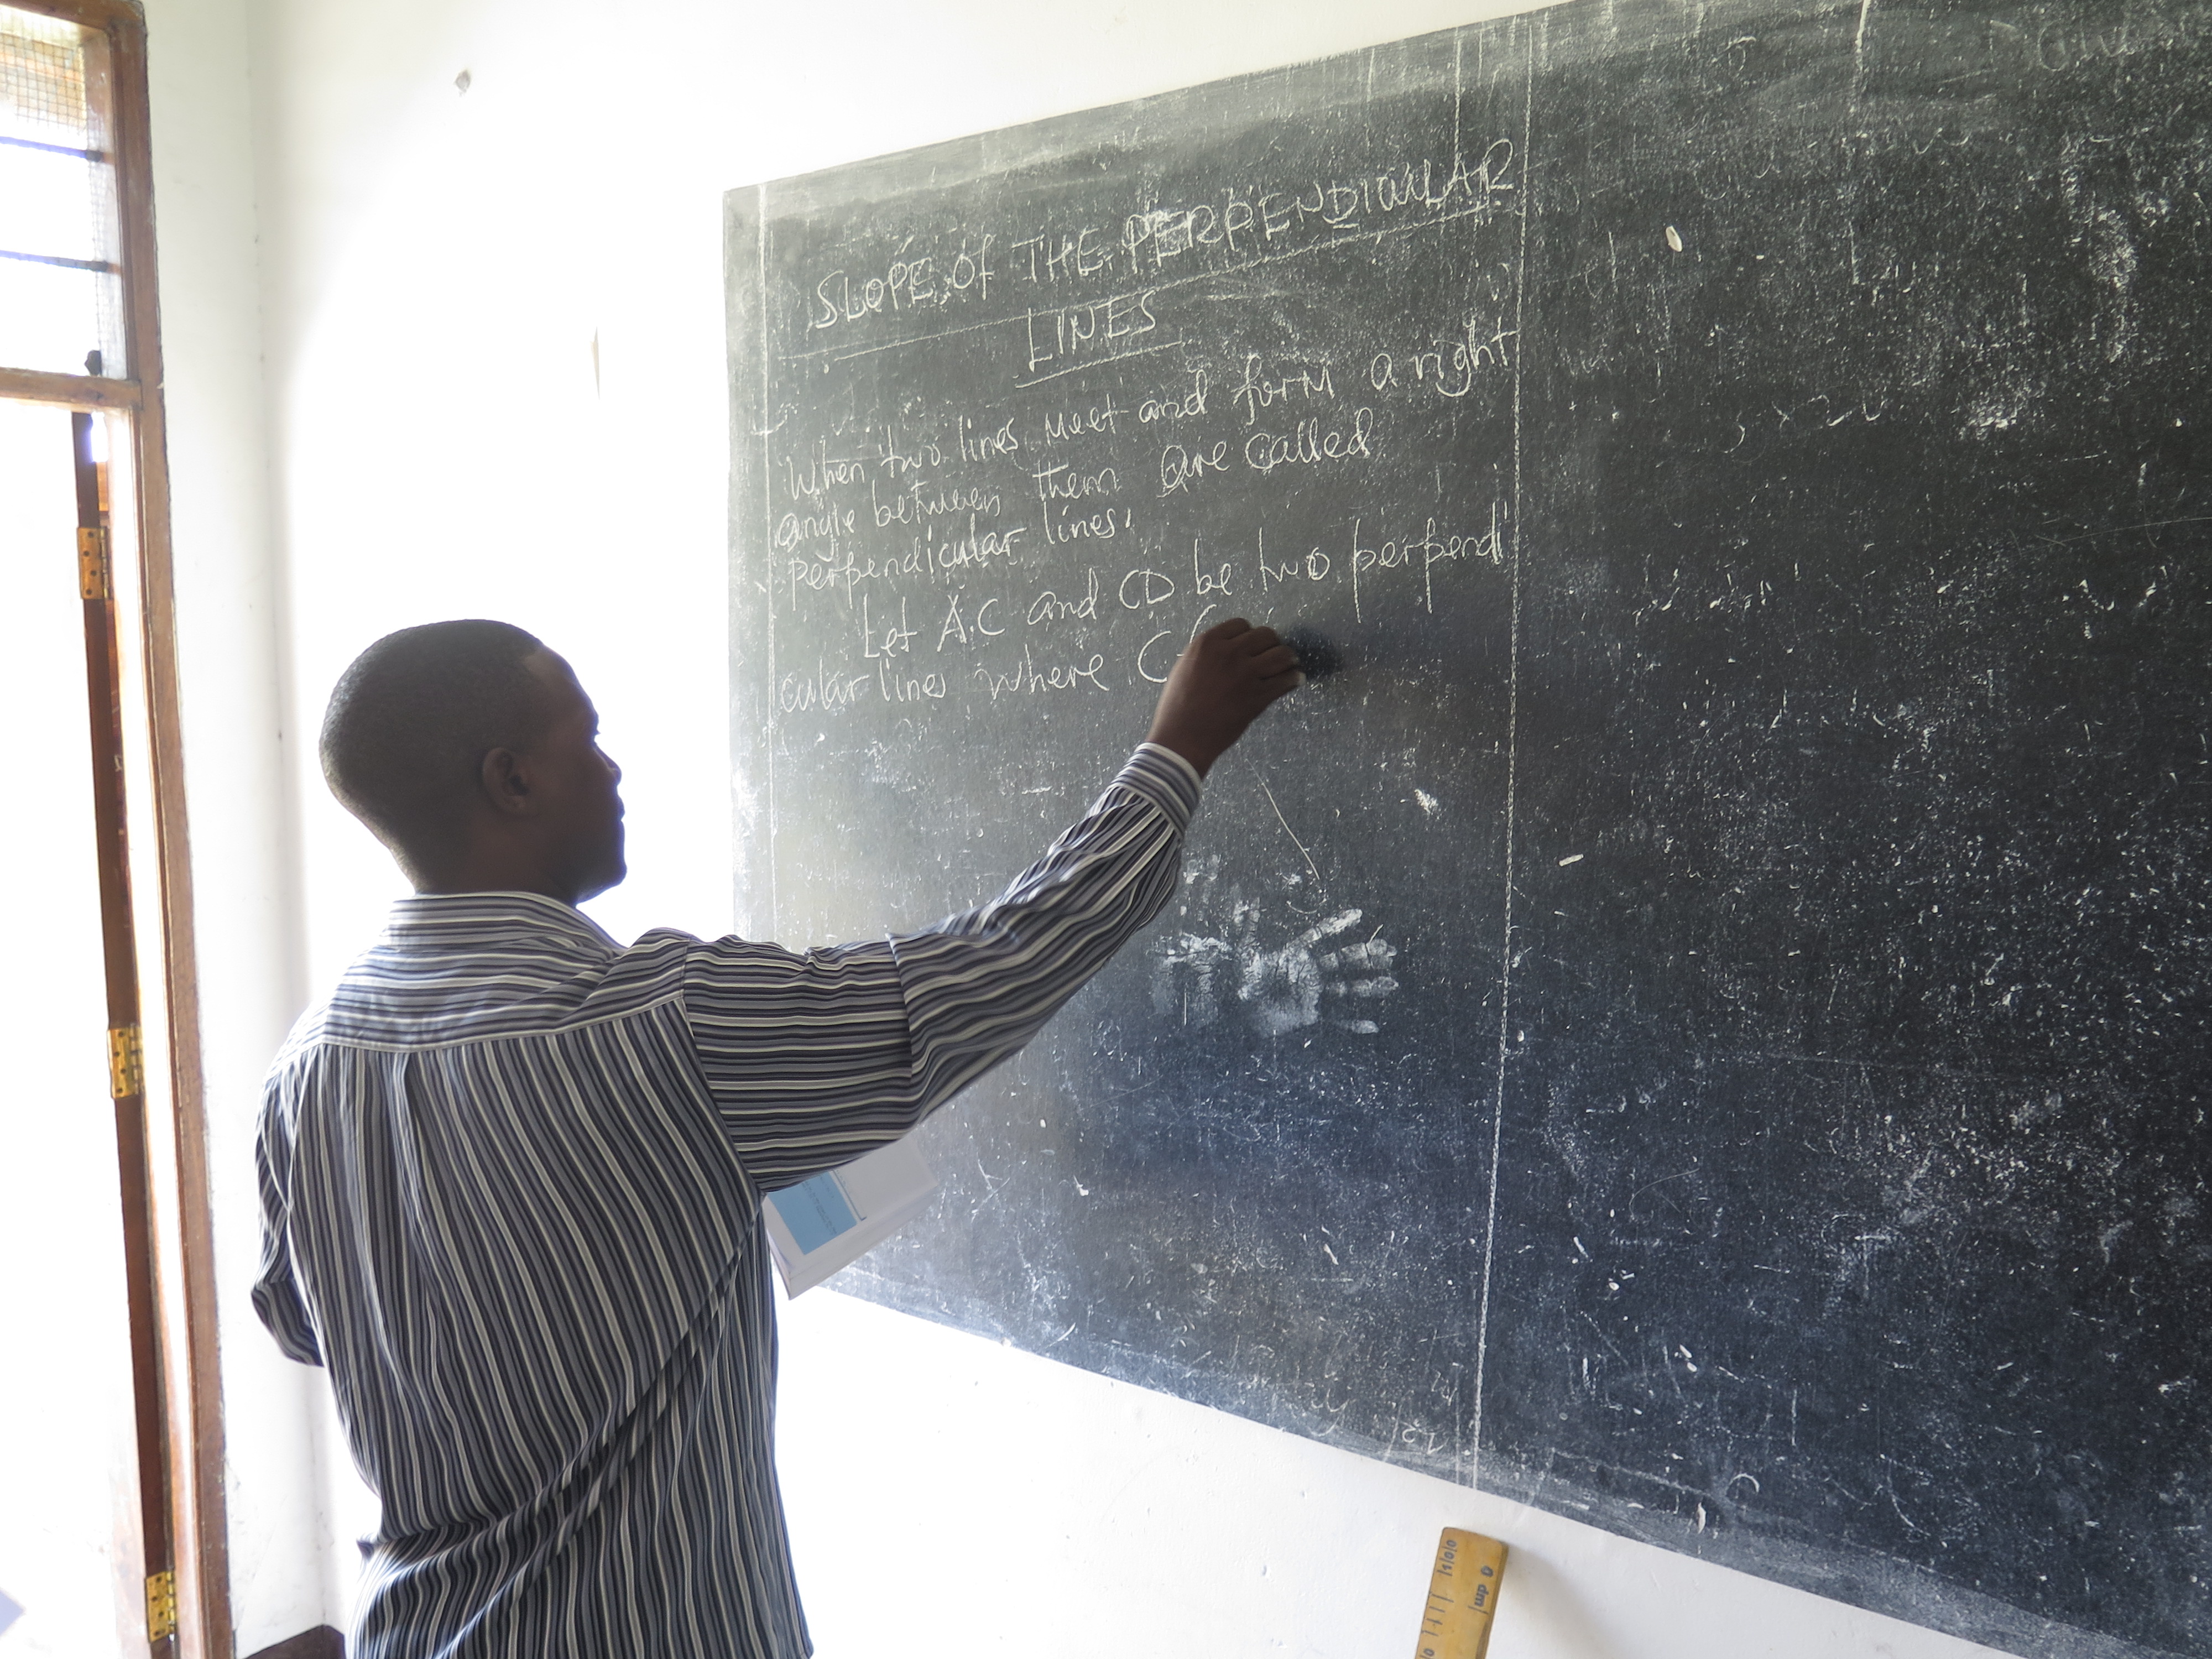 SLOPE Of THE PERPENDICULAR
LINES
When two lines meet and form a right
angle between them are called
perpendicular lines.
Let A.C and CD be two perpendi
cular lines where C
100
0 dm